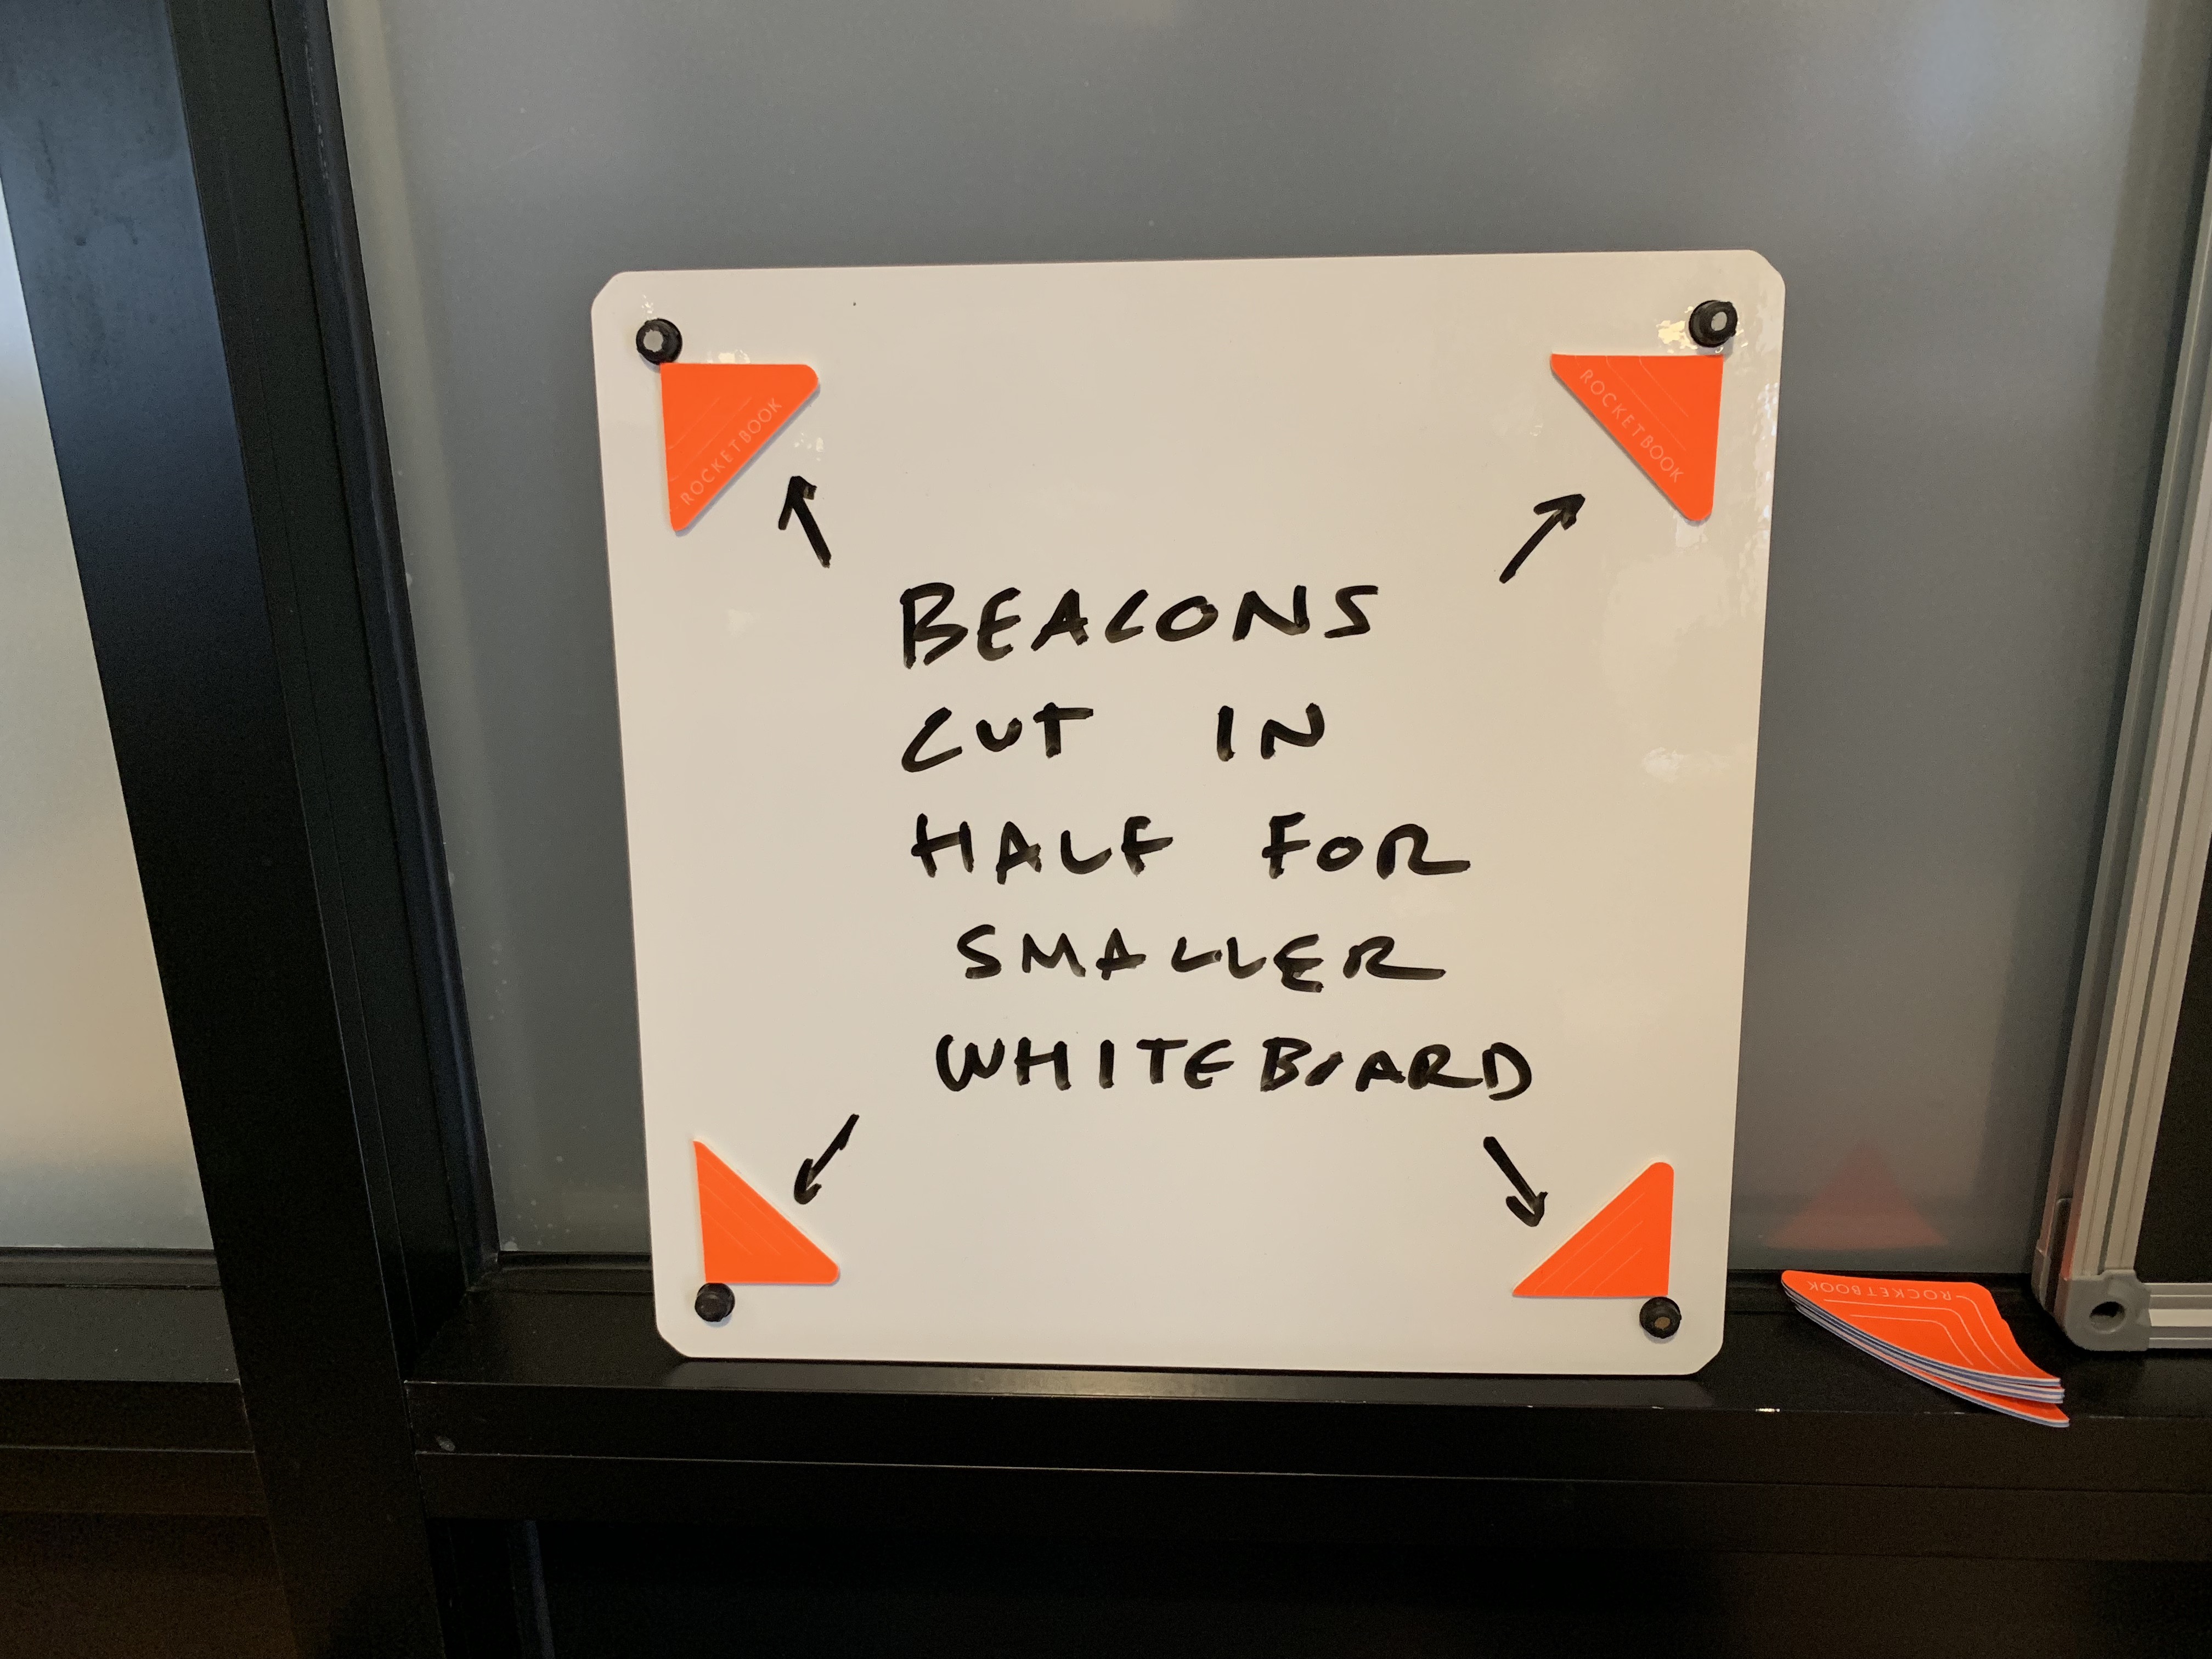 ROCKETBOOK
ROCKETBOOK
BEACONS
CUT IN
HALF FOR
SMALLER
WHITEBOARD
ROCKETBOOK